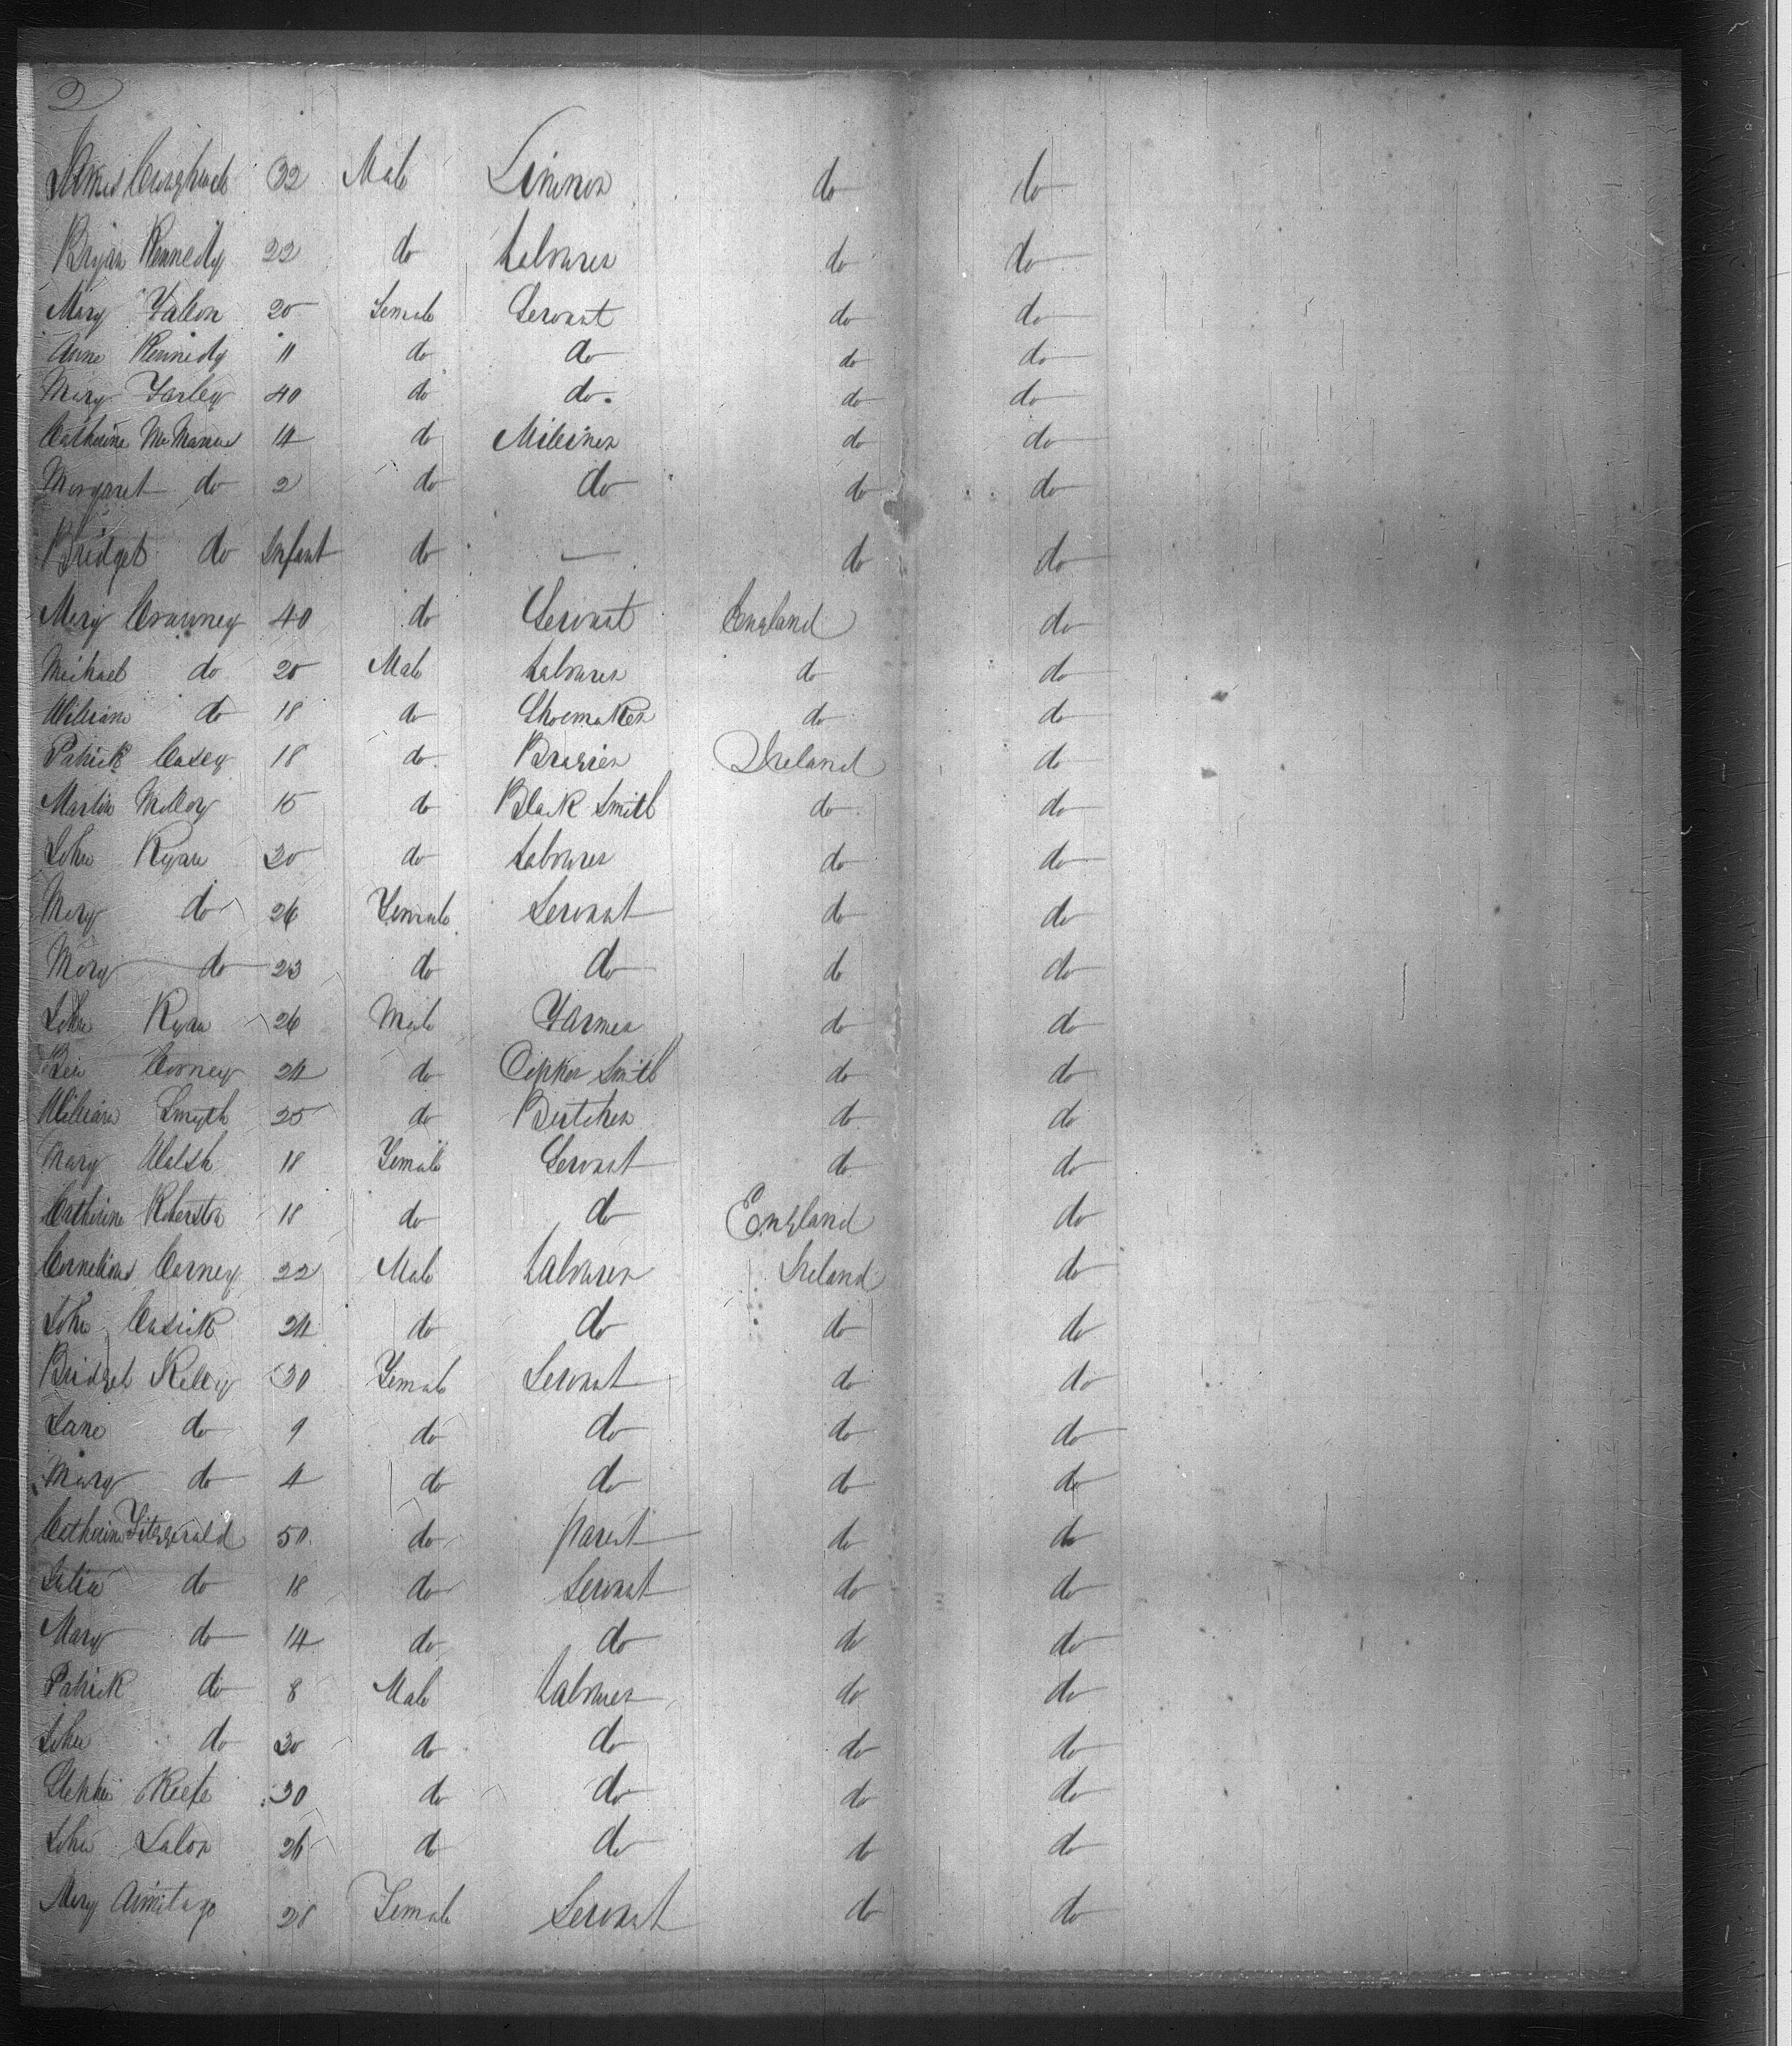 2
James 32 Male do do
Bryan Kennedy 22 do Labourer do do
Mary Fallon 20 Female Servant do do
Anne Kennedy 11 do do do do
Mary Farley 40 do do. do do
Catherine McManus 14 do Milliner do do
Margaret do 2 do do do do
Bridget do Infant do — do do
Mary 40 do Servant England do
Michael do 20 Male Labourer do do
William do 18 do Shoemaker do do
Patrick Casey 18 do Brazier Ireland do
Martin Molloy 15 do Black Smith do do
John Ryan 30 do Labourer do do
Mary do 26 Female Servant do do
Mary do 23 do do do do
John Ryan 26 Male Farmer do do
24 do Copper Smith do do
William Smyth 25 do Butcher do do
Mary Walsh 18 Female Servant do do
Catherine 18 do do England do
Cornelius 22 Male Labourer Ireland do
John Cusick 24 do do do do
Bridget Kelly 30 Female Servant do do
Jane do 9 do do do do
Mary do 4 do do do do
Catherine Fitzgerald 50 do parent do do
Julia do 18 do Servant do do
Mary do 14 do do do do
Patrick do 8 Male Labourer do do
John do 30 do do do do
Keefe 30 do do do do
John Lalor 26 do do do do
Mary Armitage 28 Female Servant do do